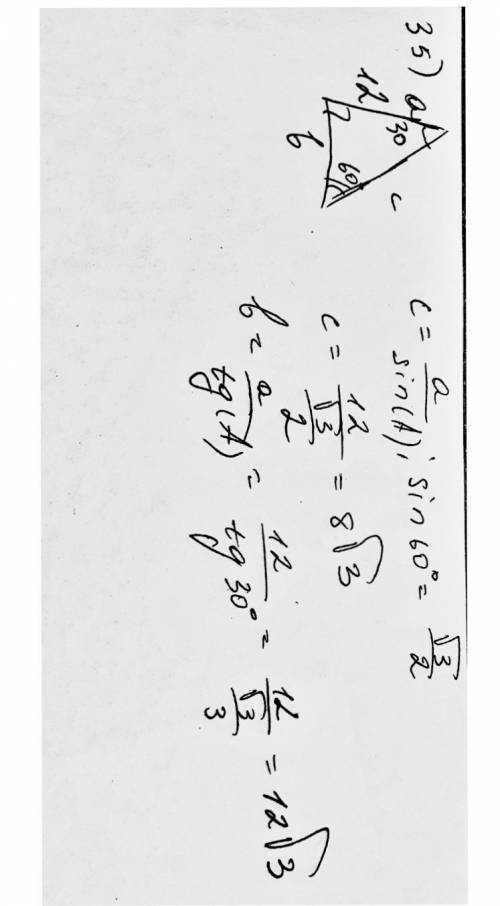 35)
a
12
30
c
60
b
c = a / sin(A); sin 60° = √3/2
c = 12 / (√3/2) = 8√3
b = a / tg(A) = 12 / tg 30° = 12 / (√3/3) = 12√3